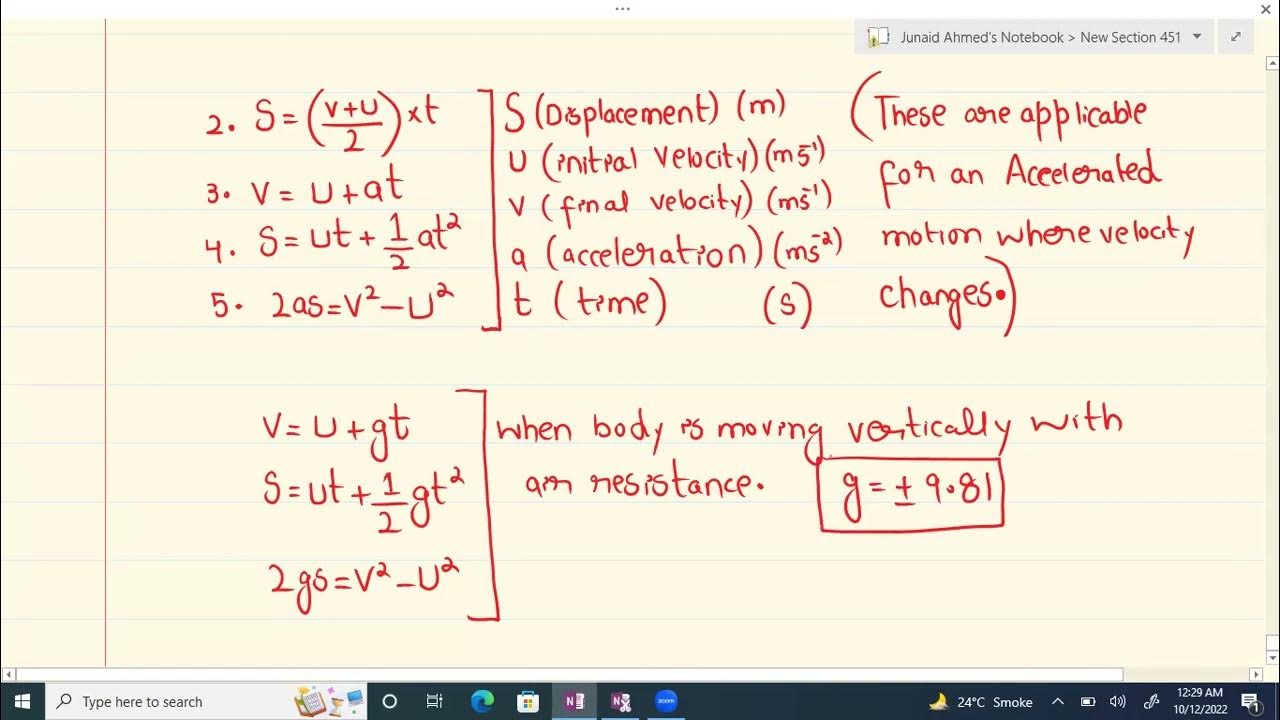 ...
Junaid Ahmed's Notebook > New Section 451
2. S = (v+u/2) × t
3. v = u + at
4. S = ut + 1/2 at²
5. 2as = v² - u²
S (Displacement) (m)
u (initial velocity) (ms⁻¹)
v (final velocity) (ms⁻¹)
a (acceleration) (ms⁻²)
t (time) (s)
(These are applicable
for an Accelerated
motion where velocity
changes.)
v = u + gt
S = ut + 1/2 gt²
2gs = v² - u²
when body is moving vertically with
air resistance.
g = ± 9.81
Type here to search
zoom
24°C Smoke
12:29 AM
10/12/2022
1